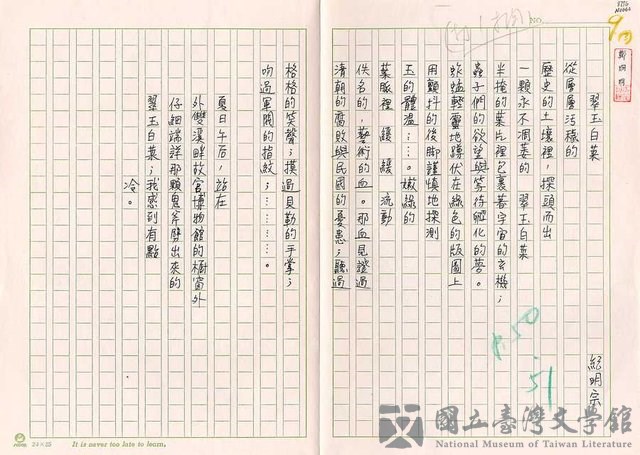 翠玉白菜
紀明宗
從層層污穢的
歷史的土壤裡，探頭而出
一顆永不凋萎的 翠玉白菜
半掩的葉片裡包裹著宇宙的玄機；
蟲子們的欲望與等待孵化的夢。
蚱蜢輕靈地蹲伏在綠色的版圖上
用顫抖的後脚謹慎地探測
玉的體溫…。嫩綠的
葉脈裡 緩 緩 流動
佚名的，藝術的血。那血見證過
清朝的腐敗與民國的憂患；聽過
格格的笑聲；摸過貝勒的手掌；
吻過軍閥的指紋；………。
夏日午后，站在
外雙溪畔故宮博物館的櫥窗外
仔細端詳那顆鬼斧劈出來的
翠玉白菜；我感到有點
冷。
NO.
P.50
51
24×25
It is never too late to learn.
國立臺灣文學館
National Museum of Taiwan Literature